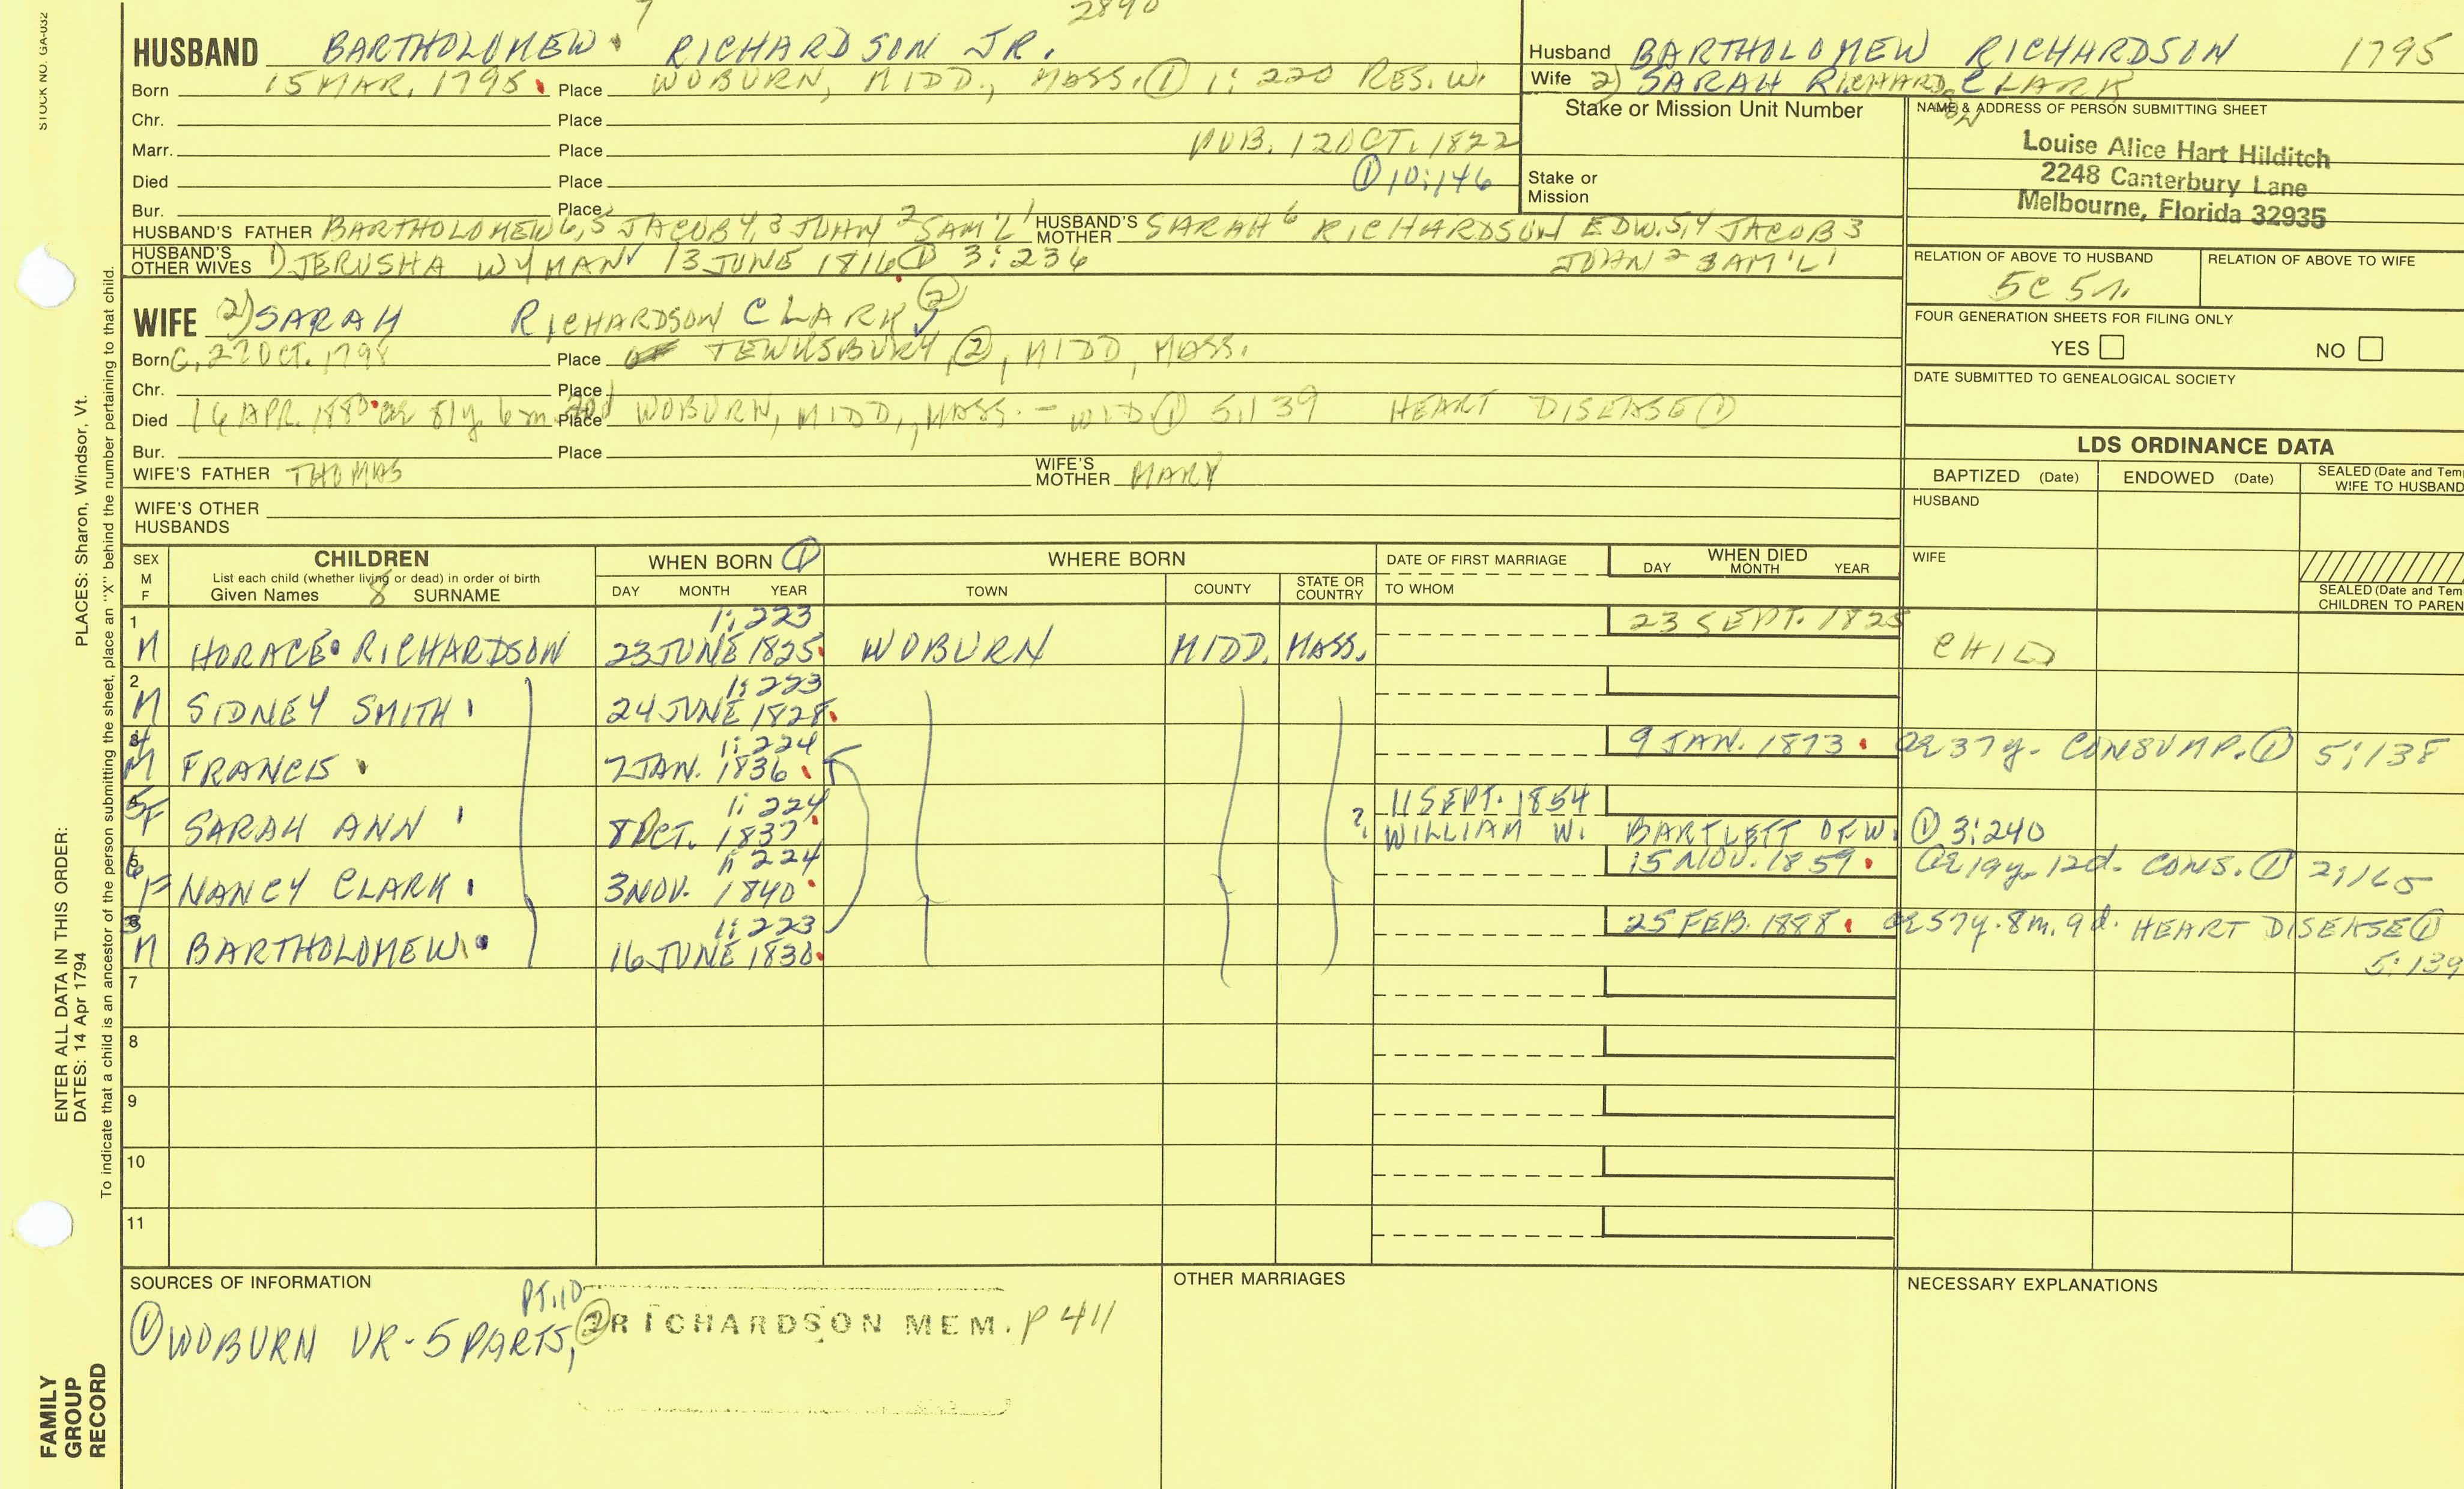 STOCK NO. GA-032
7 2890
HUSBAND BARTHOLOMEW RICHARDSON JR.
Born 15 MAR. 1795 Place WOBURN, MIDD., MASS. ① 1:220 RES. W.
Chr. Place
Marr. Place PUB. 12 OCT. 1822
Died Place ① 10:146
Bur. Place
HUSBAND'S FATHER BARTHOLOMEW 6,5 JACOB 4,3 JOHN 2 SAM'L 1 HUSBAND'S MOTHER SARAH 6 RICHARDSON EDW. 5,4 JACOB 3
HUSBAND'S OTHER WIVES 1) JERUSHA WYMAN 13 JUNE 1816 ① 3:236 JOHN 2 SAM'L 1
Husband BARTHOLOMEW RICHARDSON 1795
Wife 2) SARAH RICHARDSON CLARK
Stake or Mission Unit Number
Stake or
Mission
NAME & ADDRESS OF PERSON SUBMITTING SHEET
Louise Alice Hart Hilditch
2248 Canterbury Lane
Melbourne, Florida 32935
RELATION OF ABOVE TO HUSBAND RELATION OF ABOVE TO WIFE
5C 5r.
FOUR GENERATION SHEETS FOR FILING ONLY
YES NO
DATE SUBMITTED TO GENEALOGICAL SOCIETY
WIFE 2) SARAH RICHARDSON CLARK ②
Born C. 27 OCT. 1798 Place TEWKSBURY, ②, MIDD, MASS.
Chr. Place
Died 16 APR. 1880 ae 81y. 6m. Place WOBURN, MIDD., MASS. - WID ① 5:139 HEART DISEASE ①
Bur. Place
WIFE'S FATHER THOMAS WIFE'S MOTHER MARY
WIFE'S OTHER
HUSBANDS
LDS ORDINANCE DATA
BAPTIZED (Date) ENDOWED (Date) SEALED (Date and Tem
WIFE TO HUSBAND
HUSBAND
WIFE
SEALED (Date and Tem
CHILDREN TO PAREN
SEX
M
F
CHILDREN
List each child (whether living or dead) in order of birth
Given Names 8 SURNAME
WHEN BORN ①
DAY MONTH YEAR
WHERE BORN
TOWN COUNTY STATE OR COUNTRY
DATE OF FIRST MARRIAGE
TO WHOM
WHEN DIED
DAY MONTH YEAR
1 1:223 23 SEPT. 1825
M HORACE RICHARDSON 23 JUNE 1825 WOBURN MIDD. MASS. CHILD
2 1:223
M SIDNEY SMITH 24 JUNE 1828
4 1:224 9 JAN. 1873 ae 37y. CONSUMP. ① 5:138
M FRANCIS 7 JAN. 1836
5 1:224 11 SEPT. 1854
F SARAH ANN 8 OCT. 1837 ? WILLIAM W. BARTLETT OF W. ① 3:240
6 1:224 15 NOV. 1859 ae 19y. 12d. CONS. ① 2:165
F NANCY CLARK 3 NOV. 1840
3 1:223 25 FEB. 1888 ae 57y. 8m. 9d. HEART DISEASE ①
M BARTHOLOMEW 16 JUNE 1830 5:139
7
8
9
10
11
SOURCES OF INFORMATION
PT. 10
① WOBURN VR - 5 PARTS, ② RICHARDSON MEM. P 411
OTHER MARRIAGES
NECESSARY EXPLANATIONS
ENTER ALL DATA IN THIS ORDER:
DATES: 14 Apr 1794 PLACES: Sharon, Windsor, Vt.
To indicate that a child is an ancestor of the person submitting the sheet, place an "X" behind the number pertaining to that child.
FAMILY
GROUP
RECORD